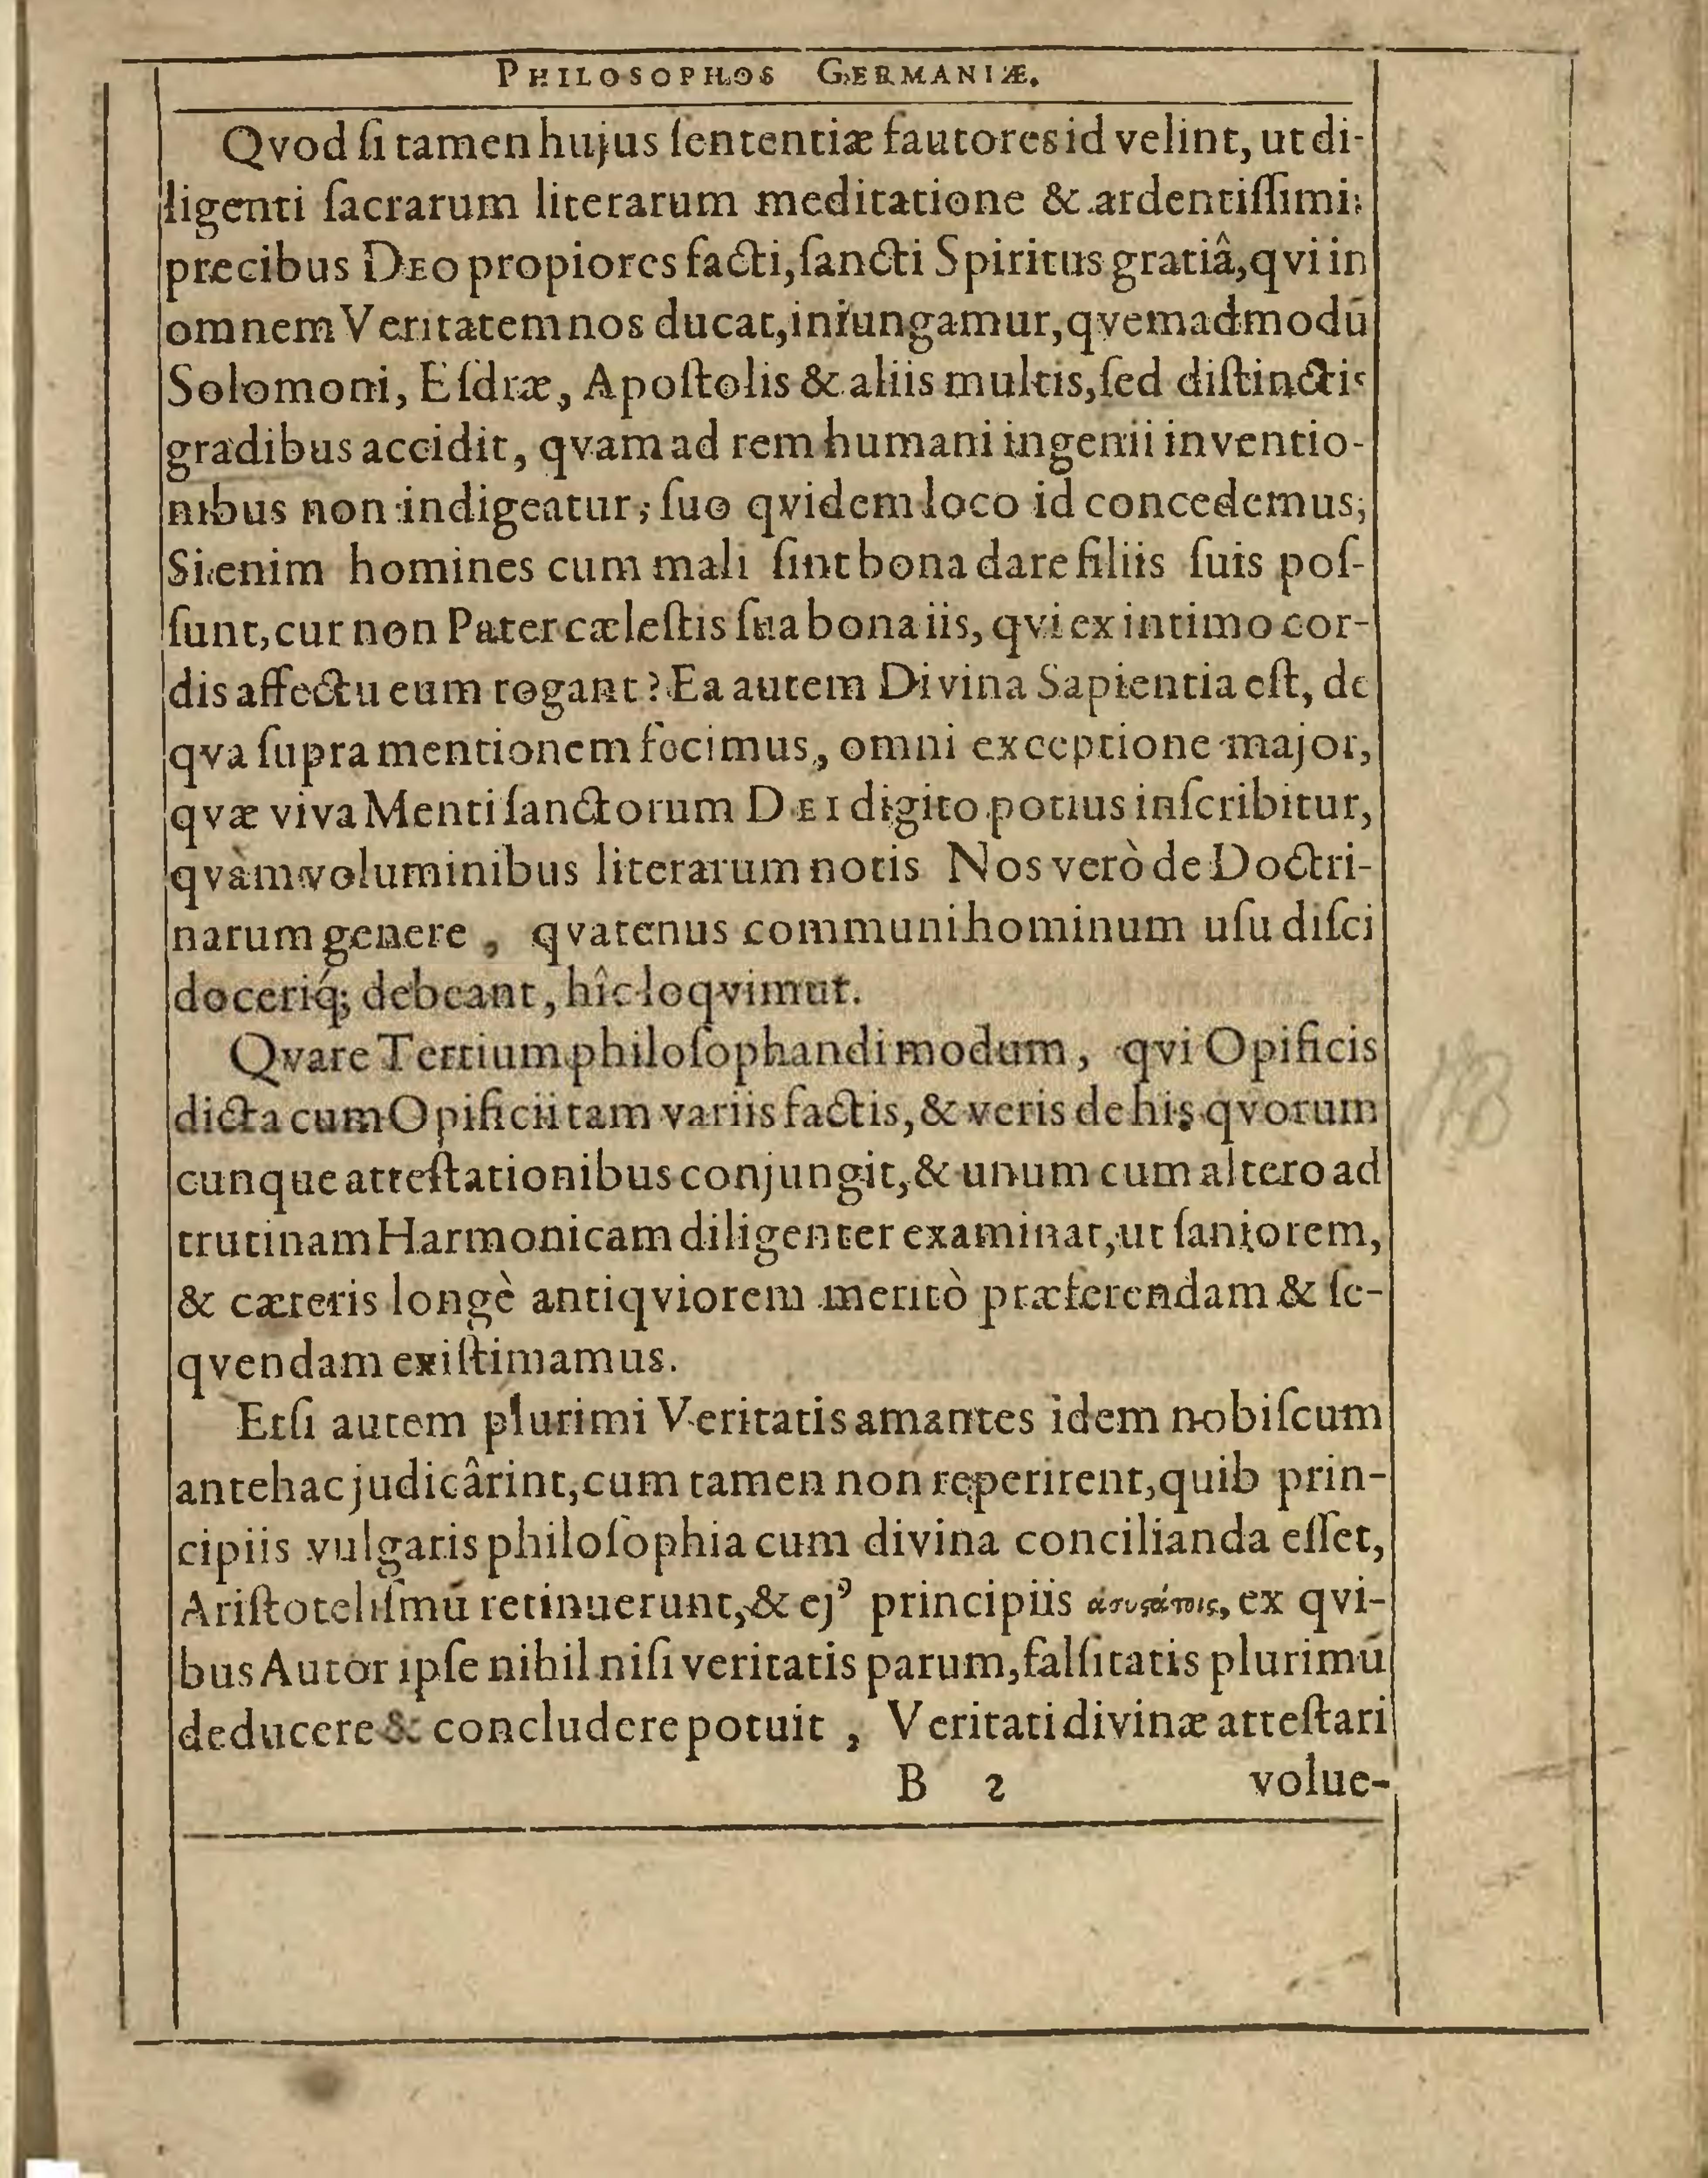 PHILOSOPHOS GERMANIÆ.
Qvod ſi tamen hujus ſententiæ fautores id velint, ut di-
ligenti ſacrarum literarum meditatione & ardentiſſimis
precibus DEO propiores facti, ſancti Spiritus gratiâ, qvi in
omnem Veritatem nos ducat, iniungamur, qvemadmodū
Solomoni, Eſdræ, Apoſtolis & aliis multis, ſed diſtinctis
gradibus accidit, qvam ad rem humani ingenii inventio-
nibus non indigeatur; ſuo qvidem loco id concedemus;
Si enim homines cum mali ſint bona dare filiis ſuis poſ-
ſunt, cur non Pater cæleſtis ſua bona iis, qvi ex intimo cor-
dis affectu eum rogant? Ea autem Divina Sapientia eſt, de
qva ſupra mentionem fecimus, omni exceptione major,
qvæ viva Menti ſanctorum DEI digito potius inſcribitur,
qvàm voluminibus literarum notis Nos verò de Doctri-
narum genere, qvatenus communi hominum uſu diſci
doceriq́; debeant, hîc loqvimur.
Qvare Tertium philoſophandi modum, qvi Opificis
dicta cum Opificii tam variis factis, & veris de his qvorum
cunque atteſtationibus conjungit, & unum cum altero ad
trutinam Harmonicam diligenter examinat, ut ſaniorem,
& cæteris longè antiqviorem meritò præferendam & ſe-
qvendam exiſtimamus.
Etſi autem plurimi Veritatis amantes idem nobiſcum
antehac judicârint, cum tamen non reperirent, quib prin-
cipiis vulgaris philoſophia cum divina concilianda eſſet,
Ariſtoteliſmū retinuerunt, & ejꝰ principiis ἀσυϛάτοις, ex qvi-
bus Autor ipſe nihil niſi veritatis parum, falſitatis plurimū
deducere & concludere potuit, Veritati divinæ atteſtari
B 2 volue-